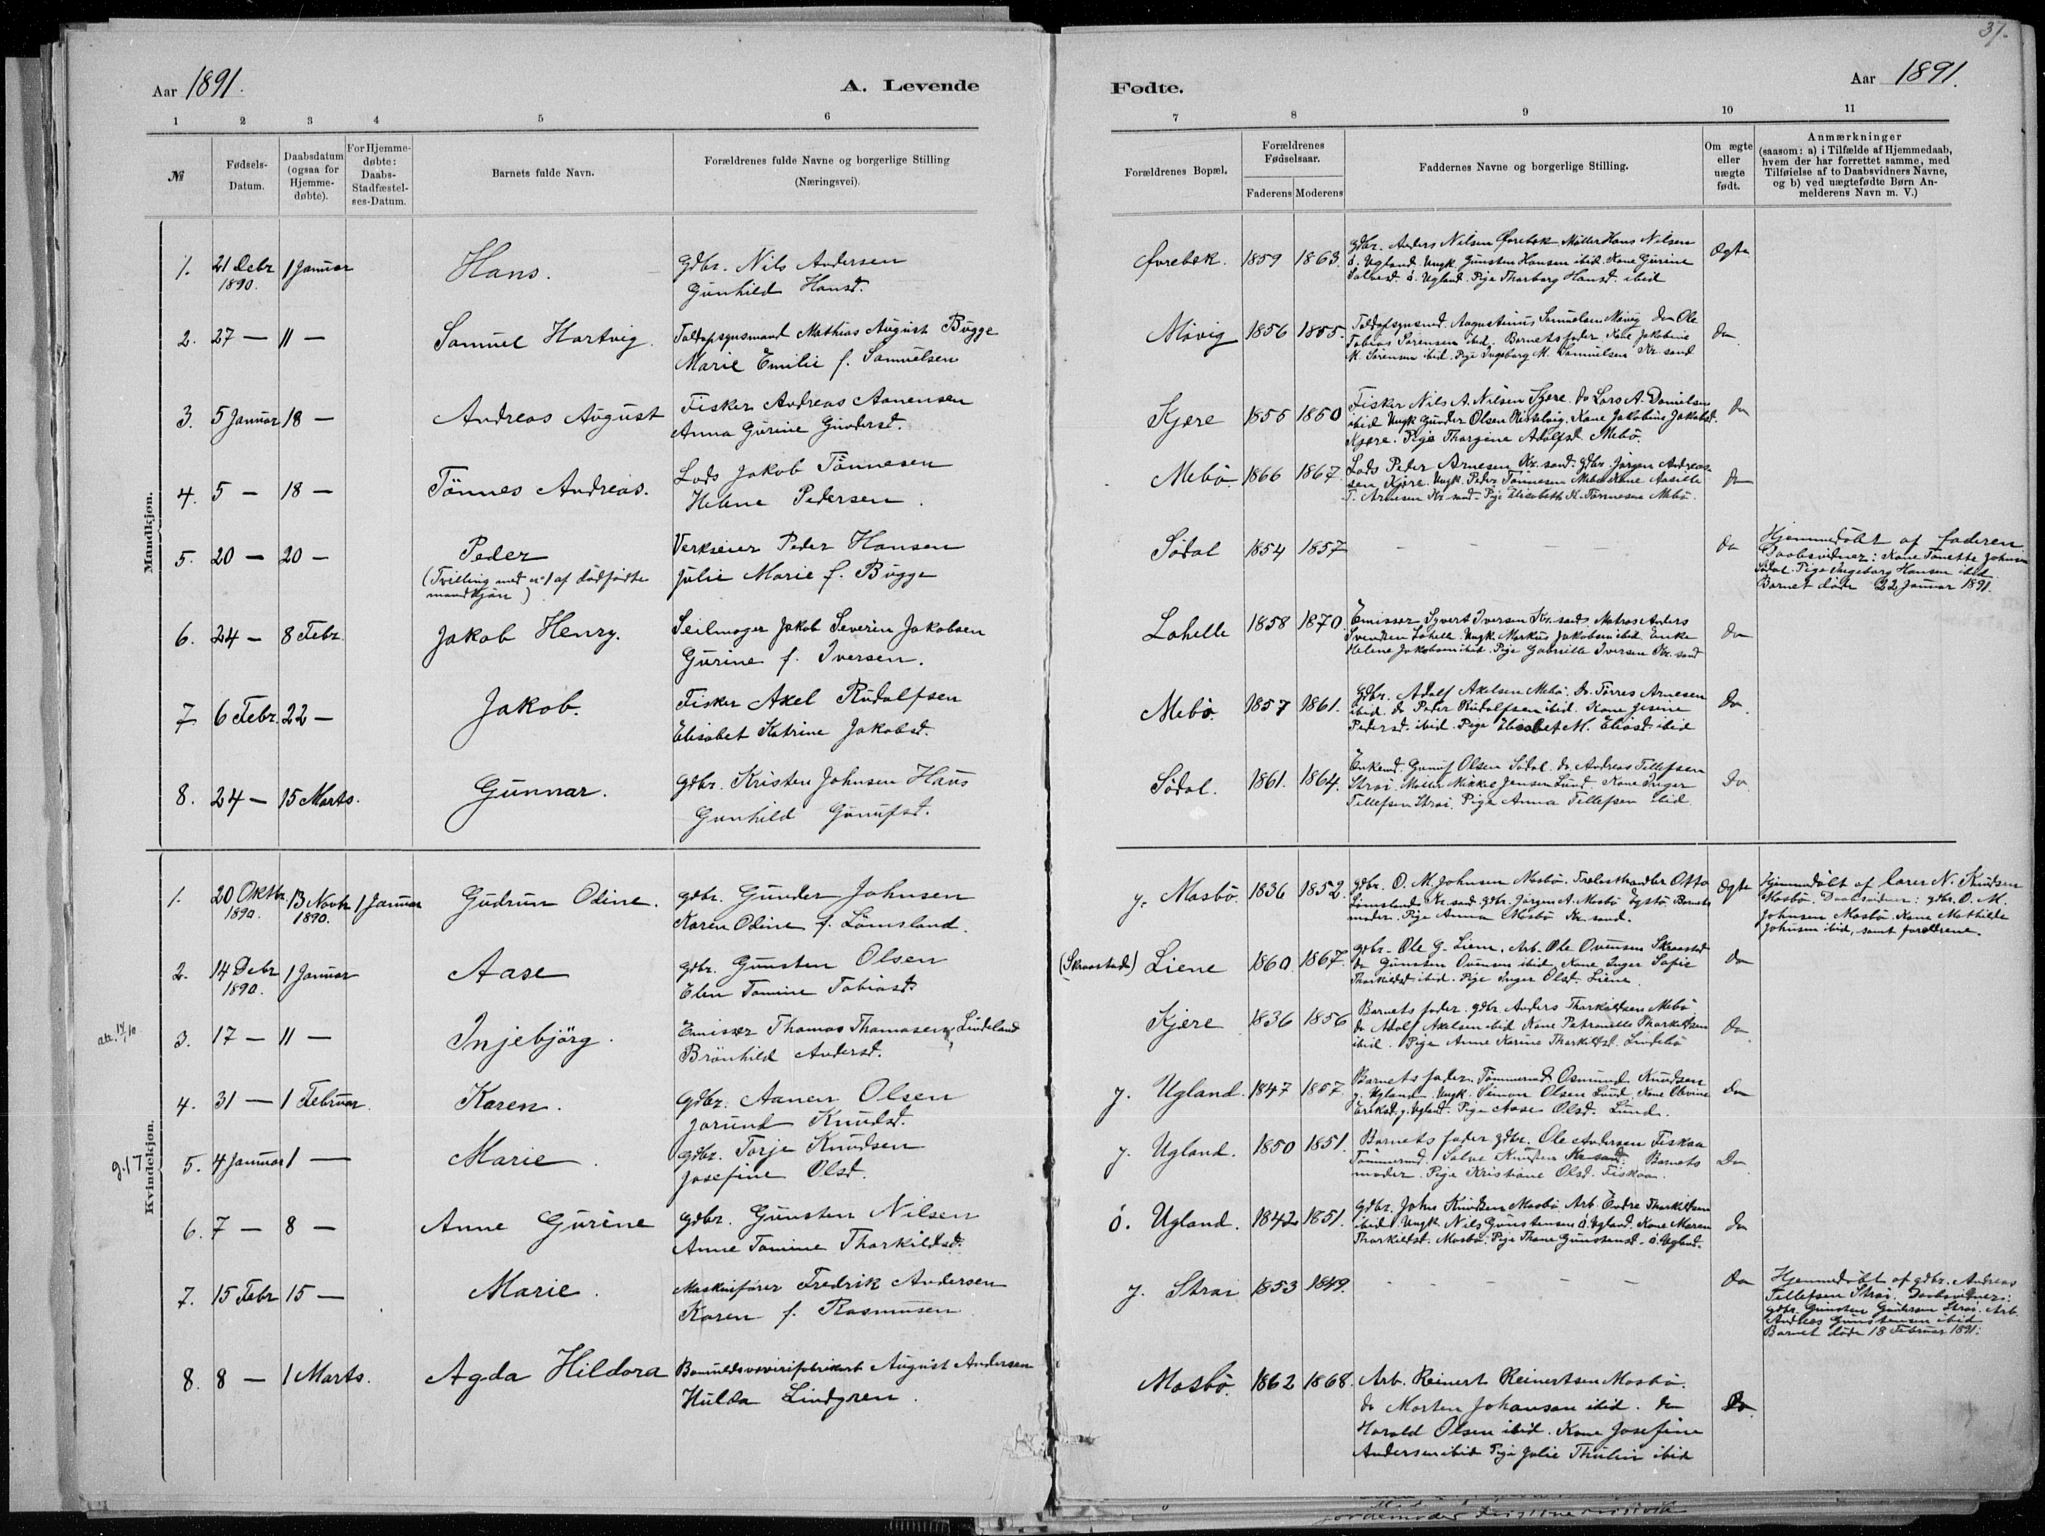 37.
Aar 1891.
A. Levende
Fødte.
Aar 1891.
1 2 3 4 5 6
7 8 9 10 11
№
Fødsels-
Datum.
Daabsdatum
(ogsaa for
Hjemme-
døbte).
For Hjemme-
døbte:
Daabs-
Stadfæstel-
ses-Datum.
Barnets fulde Navn.
Forældrenes fulde Navne og borgerlige Stilling
(Næringsvei).
Forældrenes Bopæl.
Forældrenes
Fødselsaar.
Faderens Moderens
Faddernes Navne og borgerlige Stilling.
Om ægte
eller
uægte
født.
Anmærkninger
(saasom: a) i Tilfælde af Hjemmedaab,
hvem der har forrettet samme, med
Tilføielse af to Daabsvidners Navne,
og b) ved uægtefødte Børn An-
melderens Navn m. V.)
Mandkjøn.
1. 21 Debr 1 Januar Hans. Gdbr. Nils Andersen
1890. Gunhild Hansd.
Øvrebøk. 1859 1863. Gdbr. Anders Nilsen Øvrebøk Møller Hans Nilsen Ægte
ø. Ugland. Ungk Gunsten Hansen ibid. Kone Gurine
Salvesd. ø. Ugland. Pige Tharborg Hansd. ibid
2. 27 — 11 — Samuel Hartvig. Toldopsynsmand Mathias August Bugge
Marie Emilie f. Samuelsen
Møvig 1856 1855. Toldopsynsmd. Augustinus Samuelsen Møvig Do Ole Do
Tobias Sørensen ibid. Barnets fader Kone Jakobine
M. Sørensen ibid. Pige Ingeborg M. Samuelsen Kr.sand
3. 5 Januar 18 — Andreas August Fisker Andreas Aanensen
Anna Gurine Gundersd.
Kjære 1855 1850 Fisker Nils A. Nilsen Kjære. do Lars A. Danielsen Do
ibid Ungk Gunder Olsen Kone Jakobine Jakobsd.
Kjære. Pige Thorgine Adolfsd. Mebø.
4. 5 — 18 — Tønnes Andreas. Lods Jakob Tønnesen
Helene Pedersen.
Mebø. 1866 1867. Lods Peder Arnesen Kr.sand. Gdbr. Jørgen Andreas- Do
sen Kjære. Ungk. Peder Tønnesen Mebø Kone Aasille
T. Arnesen Kr.sand. Pige Elisabeth K. Tønnesen Mebø.
5. 20 — 20 — Peder Verkseier Peder Hansen
(Tvilling med nº 1 af dødfødte Julie Marie f. Bugge
mandkjøn)
Sødal 1854 1857 — — — — Do Hjemmedøbt af faderen
Daabsvidner: Kone Tonette Johnsen
Sødal. Pige Ingeborg Hansen ibid
Barnet døde 22 Januar 1891.
6. 24 — 8 Febr. Jakob Henry. Seilmager Jakob Severin Jakobsen
Gurine f. Iversen.
Lahelle 1858 1870. Emissær Syvert Iversen Kr.sand. Matros Anders Do
Svendsen Lahelle. Ungk Markus Jakobsen ibid. Enke
Helene Jakobsen ibid. Pige Gabrielle Iversen Kr.sand
7. 6 Febr. 22 — Jakob. Fisker Axel Rudolfsen
Elisabet Katrine Jakobsd.
Mebø. 1857 1861. Gdbr. Adolf Axelsen Mebø. Do Tørres Arnesen Do.
ibid do Peder Rudolfsen ibid. Kone Gesine
Pedersd. ibid. Pige Elisabet M. Eliasd. ibid
8. 24 — 15 Marts. Gunnar. Gdbr. Kristen Johnsen Haus
Gunhild Gunufsd.
Sødal. 1861. 1864. Enkemd. Gunuf Olsen Sødal. do Andreas Tellefsen Do
Strai. Møller Mikkel Jensen Lund. Kone Inger
Tellefsen Strai. Pige Anna Tellefsen ibid
Kvindekjøn.
1. 20 Oktbr. 13 Novbr 1 Januar Gudrun Odine. Gdbr. Gunder Johnsen
1890. 1890. Karen Odine f. Lømsland.
y. Mosbø. 1836 1852. Gdbr. O. M. Johnsen Mosbø. Trelasthandler Otto Ægte Hjemmedøbt af lærer N. Knudsen
Lømsland Kr.sand. Gdbr. Jørgen A. Mosbø Barnets Mosbø. Daabsvidner: gdbr. O. M.
moder. Pige Anna Mosbø Kr.sand. Johnsen Mosbø. Kone Mathilde
Johnsen ibid, samt forældrene.
2. 14 Debr 1 Januar Aase Gdbr. Gunsten Olsen
1890. Elen Tomine Tobiasd.
(Skraastad) Liene 1860 1867. Gdbr. Ole G. Liene. Arb. Ole Ovensen Skraastad Do
do Gunsten Ovensen ibid. Kone Inger Sofie
Tharkildsd ibid. Pige Inger Olsd. Liene.
att. 14/10 3. 17 — 11 — Injebjørg. Emissær Thomas Thomasen Lindeland
Brønhild Andersd.
Kjære 1836 1856 Barnets fader. Gdbr. Anders Tharkildsen Mebø Do
do Adolf Axelsen ibid Kone Petronelle Tharkildsen
ibid. Pige Anne Karine Tharkildsd. Lindebø
4. 31 — 1 Februar. Karen. Gdbr. Aanen Olsen
Jorund Knudsd.
y. Ugland. 1847 1857. Barnets fader. Tømmermd Osmund Knudsen Do
y. Ugland. Ungk. Simon Olsen Lund Kone Olevine
Eriksd. y. Ugland. Pige Aase Olsd. Lund.
g. 17 5. 4 Januar 1 — Marie. Gdbr. Torje Knudsen
Josefine Olsd.
y. Ugland. 1850 1851. Barnets fader gdbr. Ole Andersen Fiskaa Do
Tømmermd. Salve Knudsen Kr.sand. Barnets
moder. Pige Kristiane Olsd. Fiskaa.
6. 7 — 8 — Anne Gurine Gdbr. Gunsten Nilsen
Anne Tomine Tharkildsd.
ø. Ugland. 1842 1851. Gdbr. Johs Knudsen Mosbø. Arb. Endre Tharkildsen Do
ibid Ungk Nils Gunstensen ø. Ugland. Kone Maren
Tharkildsd. Mosbø. Pige Thone Gunstensd. ø. Ugland.
7. 15 Febr 15 — Marie. Maskinfører Fredrik Andersen
Karen f. Rasmussen
y. Strai 1853 1849. — — — — Do Hjemmedøbt af gdbr. Andreas
Tellefsen Strai. Daabsvidner:
gdbr. Gunsten Gundersen Strai. Arb
Andreas Gunstensen ibid
Barnet døde 18 Februar 1891.
8. 8 — 1 Marts. Agda Hildora Bomuldsvæverifabrikarb August Andersen
Hulda Lindgren.
Mosbø. 1862 1868. Arb. Reinert Reinertsen Mosbø. Do
do Morten Johansen ibid. do
Harald Olsen ibid. Kone Josefine
Andersen ibid Pige Julie Thulin ibid